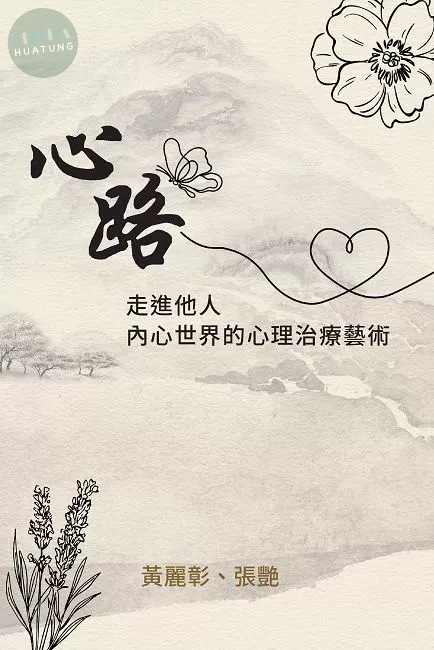 HUATUNG
心路
走進他人
內心世界的心理治療藝術
黃麗彰、張艷